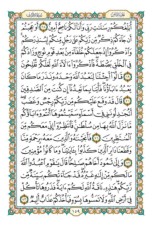 أُبَلِّغُكُمْ رِسَالَاتِ رَبِّي وَأَنَا لَكُمْ نَاصِحٌ أَمِينٌ ٦٨ أَوَعَجِبْتُمْ
أَنْ جَاءَكُمْ ذِكْرٌ مِنْ رَبِّكُمْ عَلَىٰ رَجُلٍ مِنْكُمْ لِيُنْذِرَكُمْ
وَاذْكُرُوا إِذْ جَعَلَكُمْ خُلَفَاءَ مِنْ بَعْدِ قَوْمِ نُوحٍ وَزَادَكُمْ
فِي الْخَلْقِ بَسْطَةً فَاذْكُرُوا آلَاءَ اللَّهِ لَعَلَّكُمْ تُفْلِحُونَ
٦٩ قَالُوا أَجِئْتَنَا لِنَعْبُدَ اللَّهَ وَحْدَهُ وَنَذَرَ مَا كَانَ
يَعْبُدُ آبَاؤُنَا فَأْتِنَا بِمَا تَعِدُنَا إِنْ كُنْتَ مِنَ الصَّادِقِينَ
٧٠ قَالَ قَدْ وَقَعَ عَلَيْكُمْ مِنْ رَبِّكُمْ رِجْسٌ وَغَضَبٌ
أَتُجَادِلُونَنِي فِي أَسْمَاءٍ سَمَّيْتُمُوهَا أَنْتُمْ وَآبَاؤُكُمْ
مَا نَزَّلَ اللَّهُ بِهَا مِنْ سُلْطَانٍ فَانْتَظِرُوا إِنِّي مَعَكُمْ مِنَ
الْمُنْتَظِرِينَ ٧١ فَأَنْجَيْنَاهُ وَالَّذِينَ مَعَهُ بِرَحْمَةٍ مِنَّا
وَقَطَعْنَا دَابِرَ الَّذِينَ كَذَّبُوا بِآيَاتِنَا وَمَا كَانُوا مُؤْمِنِينَ
٧٢ وَإِلَىٰ ثَمُودَ أَخَاهُمْ صَالِحًا قَالَ يَا قَوْمِ اعْبُدُوا اللَّهَ
مَا لَكُمْ مِنْ إِلَٰهٍ غَيْرُهُ قَدْ جَاءَتْكُمْ بَيِّنَةٌ مِنْ
رَبِّكُمْ هَٰذِهِ نَاقَةُ اللَّهِ لَكُمْ آيَةً فَذَرُوهَا تَأْكُلْ
فِي أَرْضِ اللَّهِ وَلَا تَمَسُّوهَا بِسُوءٍ فَيَأْخُذَكُمْ عَذَابٌ أَلِيمٌ ٧٣
١٥٩